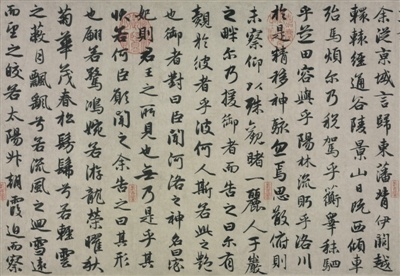 余從京域言歸東藩背伊闕越
轘轅經通谷陵景山日既西傾車
殆馬煩尔乃稅駕乎蘅皋秣駟
乎芝田容與乎陽林流眄乎洛川
於是精移神駭忽焉思散俯則
未察仰以殊觀睹一麗人于巖
之畔尔乃援御者而告之曰尔有
覿於彼者乎彼何人斯若此之艷
也御者對曰臣聞河洛之神名曰宓
妃則君王之所見也无乃是乎其
狀若何臣願聞之余告之曰其形
也翩若驚鴻婉若游龍榮曜秋
菊華茂春松髣髴兮若輕雲
之蔽月飄飄兮若流風之迴雪遠
而望之皎若太陽升朝霞迫而察